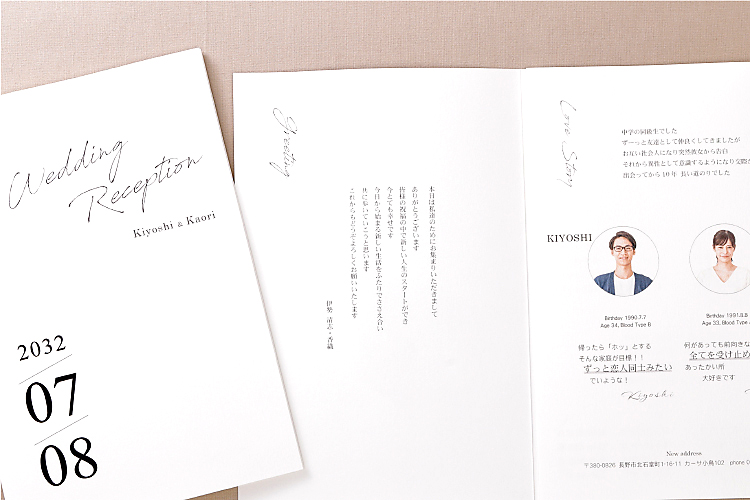 Wedding
Reception
Kiyoshi & Kaori
2032
07
08
Greeting
本日は私達のためにお集まりいただきまして
ありがとうございます
皆様の祝福の中で新しい人生のスタートができ
今とても幸せです
今日から始まる新しい生活をふたりでささえ合い
共に歩いていこうと思います
これからもどうぞよろしくお願いいたします
伊勢 清志・香織
Love Story
中学の同級生でした
ずーっと友達として仲良くしてきましたが
お互い社会人になり突然彼女から告白
それから異性として意識するようになり交際
出会ってから10年 長い道のりでした
KIYOSHI
Birthday 1990.7.7
Age 34, Blood Type B
Birthday 1991.8.8
Age 33, Blood Type
帰ったら「ホッ」とする
そんな家庭が目標!!
ずっと恋人同士みたい
でいような!
Kiyoshi
何があっても前向きな
全てを受け止め
あったかい所
大好きです
New address
〒380-0826 長野市北石堂町1-16-11 カーサ小鳥102 phone 0